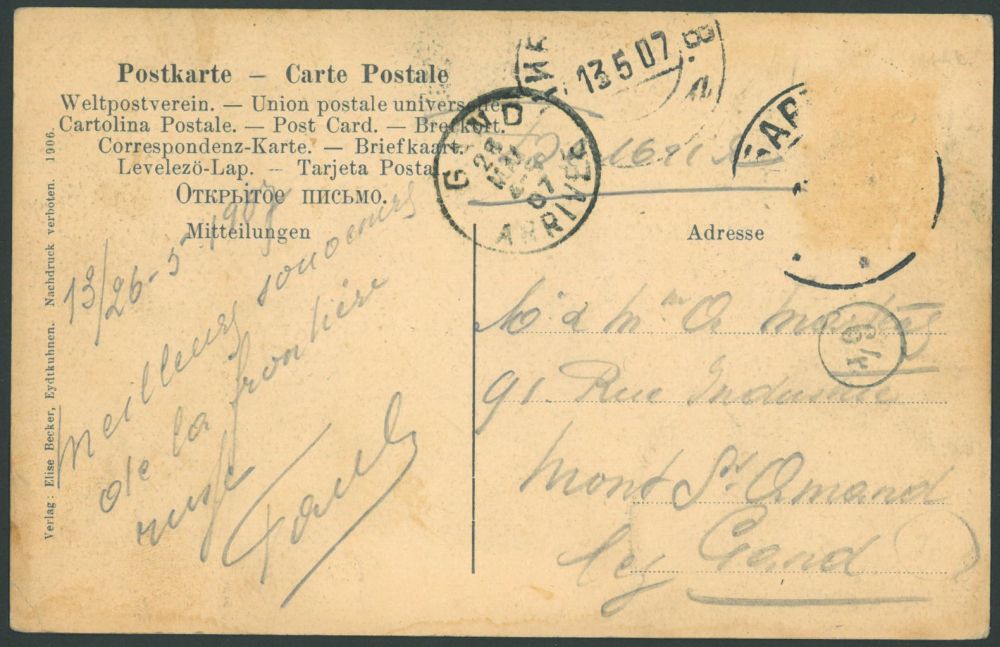 Postkarte – Carte Postale
Weltpostverein. — Union postale universelle.
Cartolina Postale. — Post Card. — Brefkort.
Correspondenz-Karte. — Briefkaart.
Levelező-Lap. — Tarjeta Postal
ОТКРЫТОЕ ПИСЬМО.
Mitteilungen
Adresse
Verlag: Elise Becker, Eydtkuhnen. Nachdruck verboten. 1906.
13 5 07
GAND
28
07
ARRIVEE
13/26-5 1907
Meilleurs
de la frontière
russe
Mr
91. Rue Industrie
Mont St Amand
lez Gand